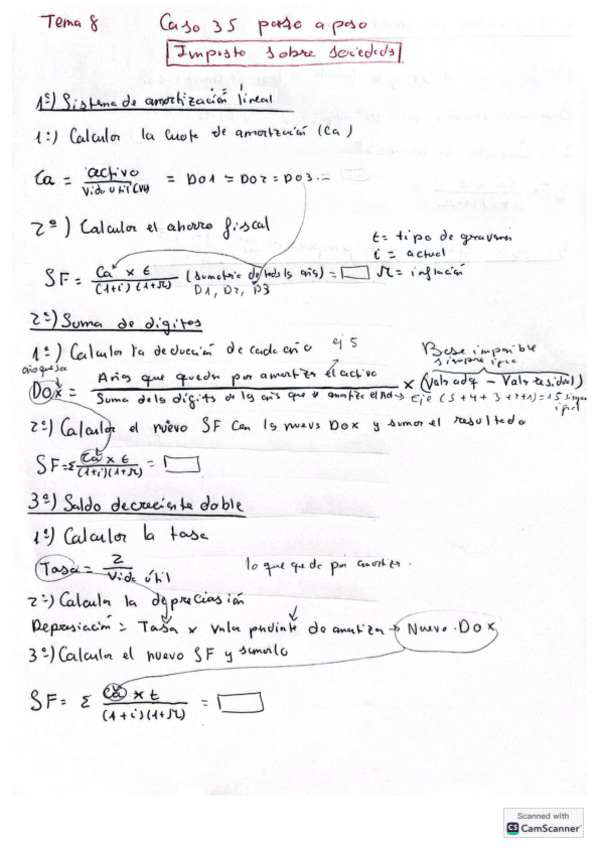 Tema 8 Caso 35 paso a paso
Imposto sobre sociedads
1º) Sistema de amortización lineal
1:) Calcular la cuota de amortización (Ca)
Ca = activo / Vida útil (VU) = D01 = D02 = D03 =
2º) Calcular el ahorro fiscal
t = tipo de gravamen
i = actual
SF = Ca x t / (1+i)(1+Ω) (sumatorio de todos ls años) = Ω = inflación
D1, D2, D3
2º) Suma de digitos
1º) Calcular la deducción de cada año ej 5
Base imponible
siempre igual
año que sea
D0x = Años que quedan por amortizar el activo / Suma de ls dígits de ls años que se amortiza el x (Valr adq - Valr residual)
Eje (5+4+3+2+1)=15 siempre
igual
2º) Calcular el nuevo SF con ls nuevs D0x y sumar el resultado
SF = Σ Ca x t / (1+i)(1+Ω) =
3º) Saldo decreciente doble
1º) Calcular la tasa
Tasa = 2 / Vida útil lo que queda por amortizar.
2º) Calcular la depreciasión
Depresiación = Tasa x valor pendinte de amortizar → Nuevo D0x
3º) Calcular el nuevo SF y sumarlo
SF = Σ Ca x t / (1+i)(1+Ω) =
Scanned with
CS CamScanner